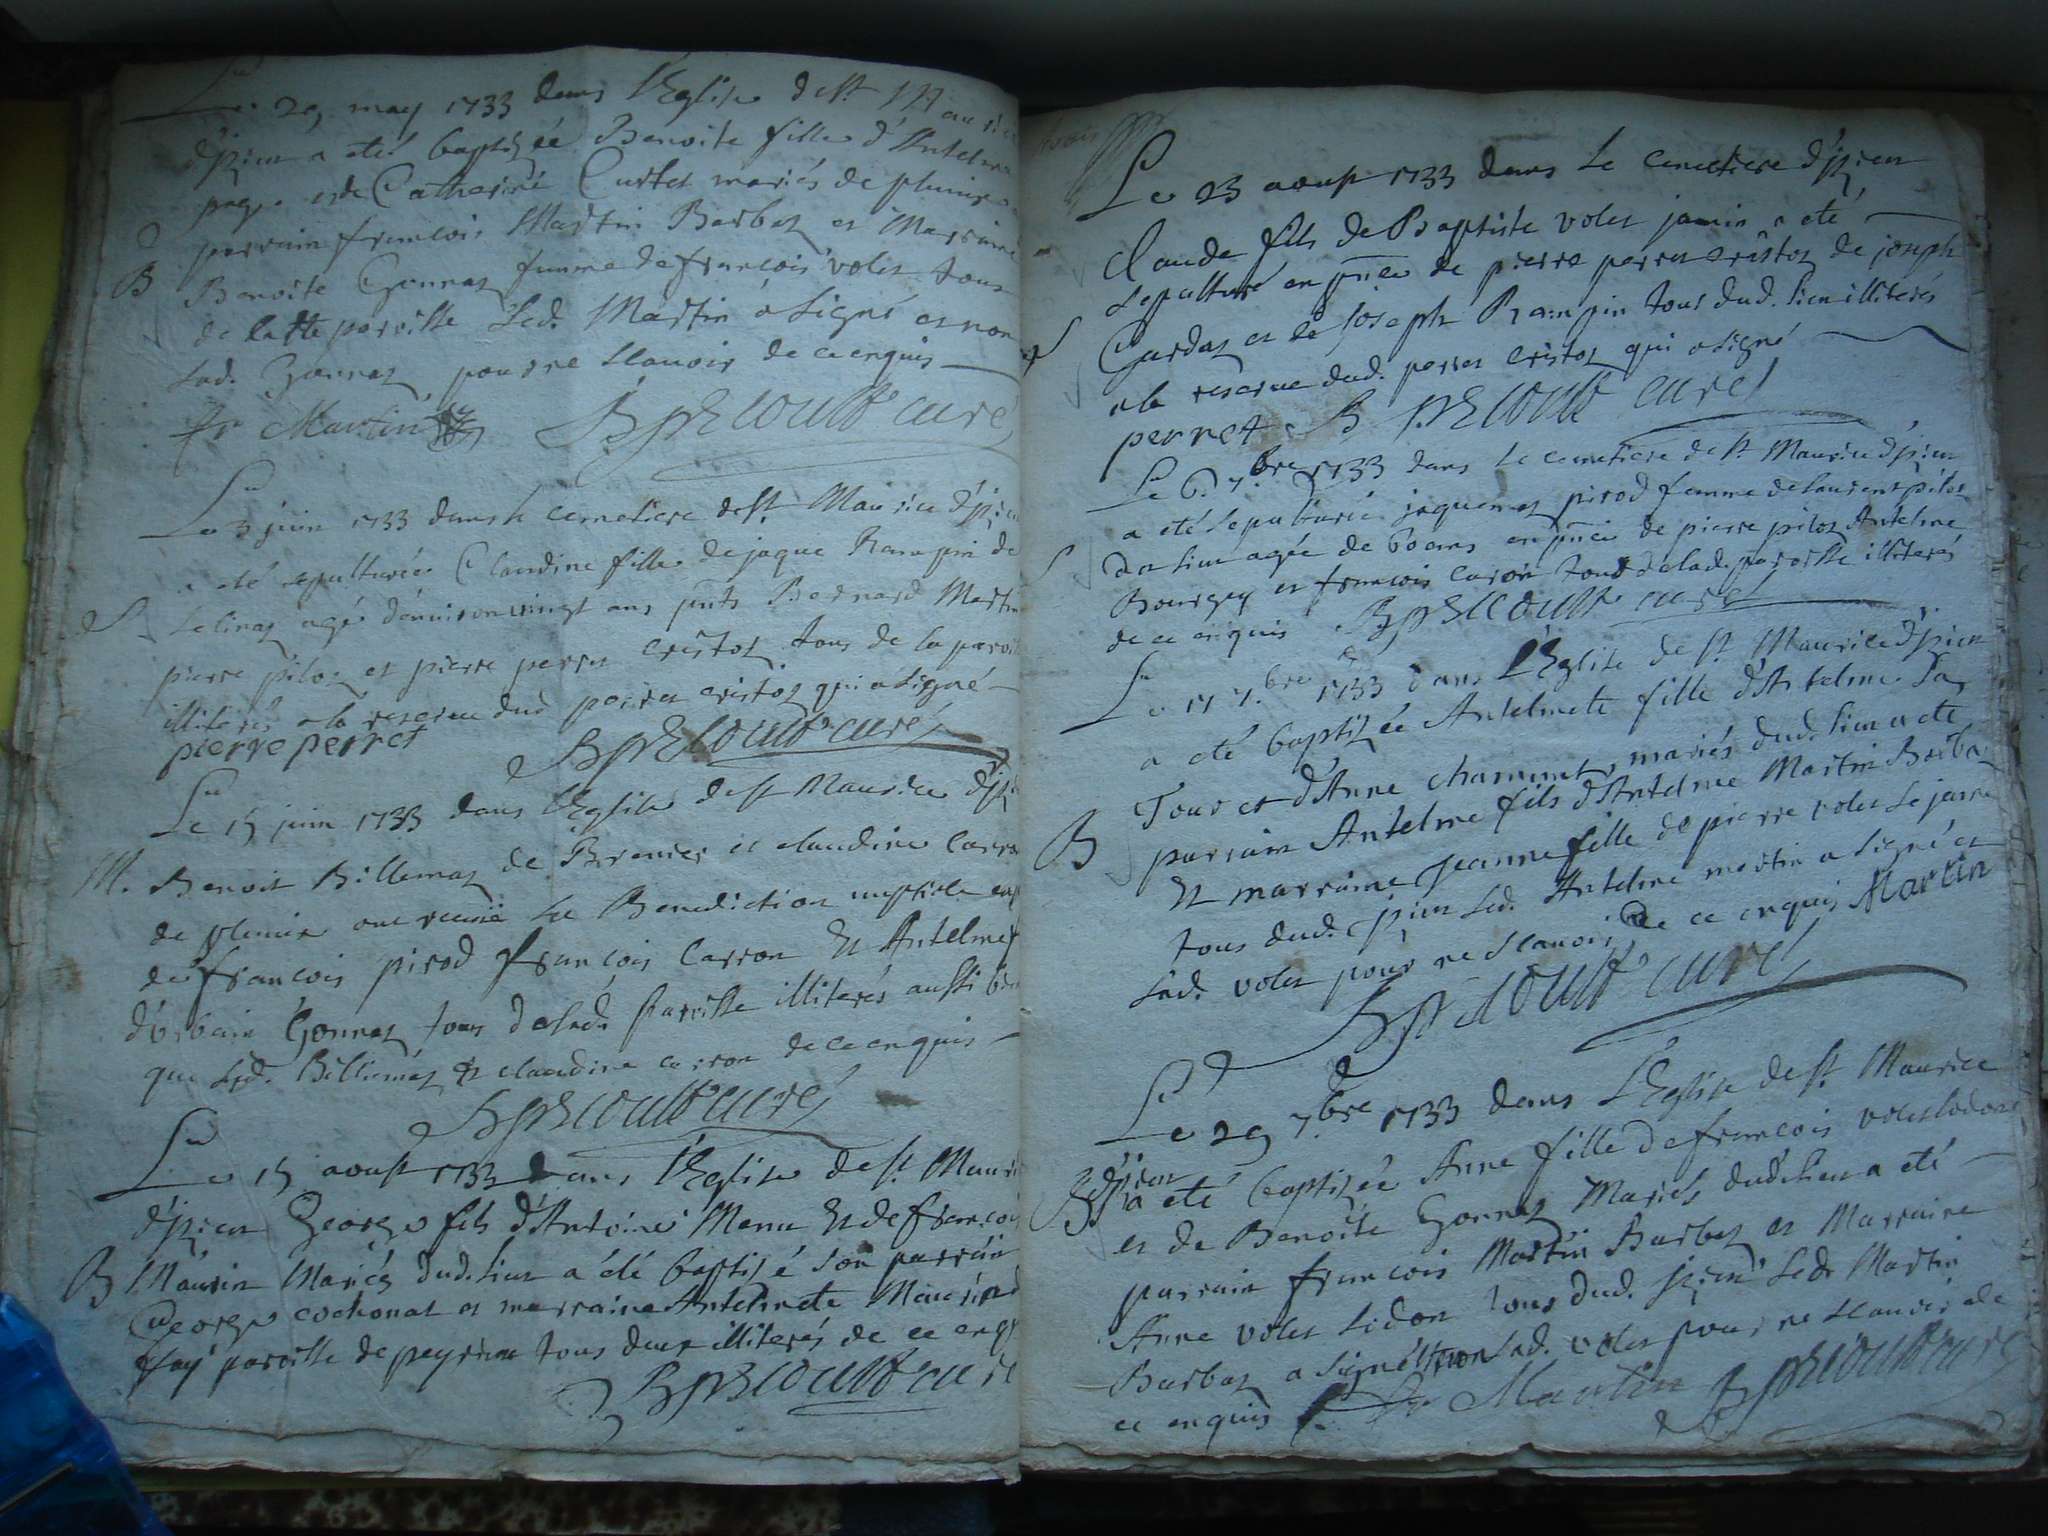 Le 29 may 1733 dans l'Eglise de st Maurice
d'jzieu a eté baptizée Benoite fille d'Antelme
page et de Catherine Curtet mariés de plumieu
parrain francois Martin Barbaz et Marraine
B Benoite Gonnaz femme de francois volet tous
de ladte paroisse led. Martin a signé et non
lad. Gonnaz pour ne scavoir de ce enquis
fr Martin B precoult curé
Le 3 juin 1733 dans le cemetiere de st Maurice d'jzieu
a eté sepulturée Claudine fille de jaque Rampin de
S agé d'environ vingt ans pnts Bernard Martin
pierre piloz et pierre perret cristoz tous de la paroisse
illiterés a la reserve dud perret cristoz qui a signé
pierre perret
B precoult curé
Le 15 juin 1733 dans l'Eglise de st Maurice d'jzieu
M. Benoit Billemaz de Brenier et claudine Carron
de ont receue la Benediction nuptiale
de francois pirod francois Carron Et Antelme
d'Urbain Gonnaz tous de lad. paroisse illiterés aussi bien
que led. Billiemaz et claudine carron de ce enquis
B precoult curé
Le 15 aoust 1733 dans l'Eglise de st. Maurice
d'jzieu George fils d'Antoine Menu Et de francoise
B Maurin Mariés dud. lieu a été baptizé son parrain
George cochonat et marraine Antelmete Maurin
fay paroisse de peyrieu tous deux illiterés de ce enquis
B precoult curé
Le 23 aoust 1733 dans le cemetiere d'jzieu
Claude fils de Baptiste volet jamin a eté
sepulturé en pnce de pierre perret cristoz de joseph
S Gardaz et de joseph Rampin tous dud. lieu illiterés
a la reserve dud. perret cristoz qui a signé
perret B precoult curé
Le 6. 7.bre 1733 dans le cemetiere de st Maurice d'jzieu
a eté sepulturée jaquemaz pirod femme de laurent piloz
S dud lieu agée de 60 ans en pnce de pierre piloz Antelme
Bourgey et francois caron tous de lad. paroisse illiterés
de ce enquis B precoult curé
Le 17 7.bre 1733 dans l'Eglise de st. Maurice d'jzieu
a eté baptizée Antelmete fille d'Antelme La
Tour et d'Anne mariés dud. lieu a eté
B parrain Antelme fils d'Antelme Martin Barbaz
Et marraine jeanne fille de pierre volet le jeune
tous dud. jzieu led. Antelme martin a signé et
lad. volet pour ne scavoir de ce enquis Martin
B precoult curé
Le 29 7.bre 1733 dans l'Eglise de st. Maurice
d'jzieu
B a eté baptizée Anne fille de francois volet lidon
et de Benoite Gonnaz Mariés dud. lieu a eté
parrain francois Martin Barbaz et Marraine
Anne volet lidon tous dud. jzieu led. Martin
Barbaz a signé et non lad. volet pour ne scavoir de
ce enquis fr Martin B precoult curé